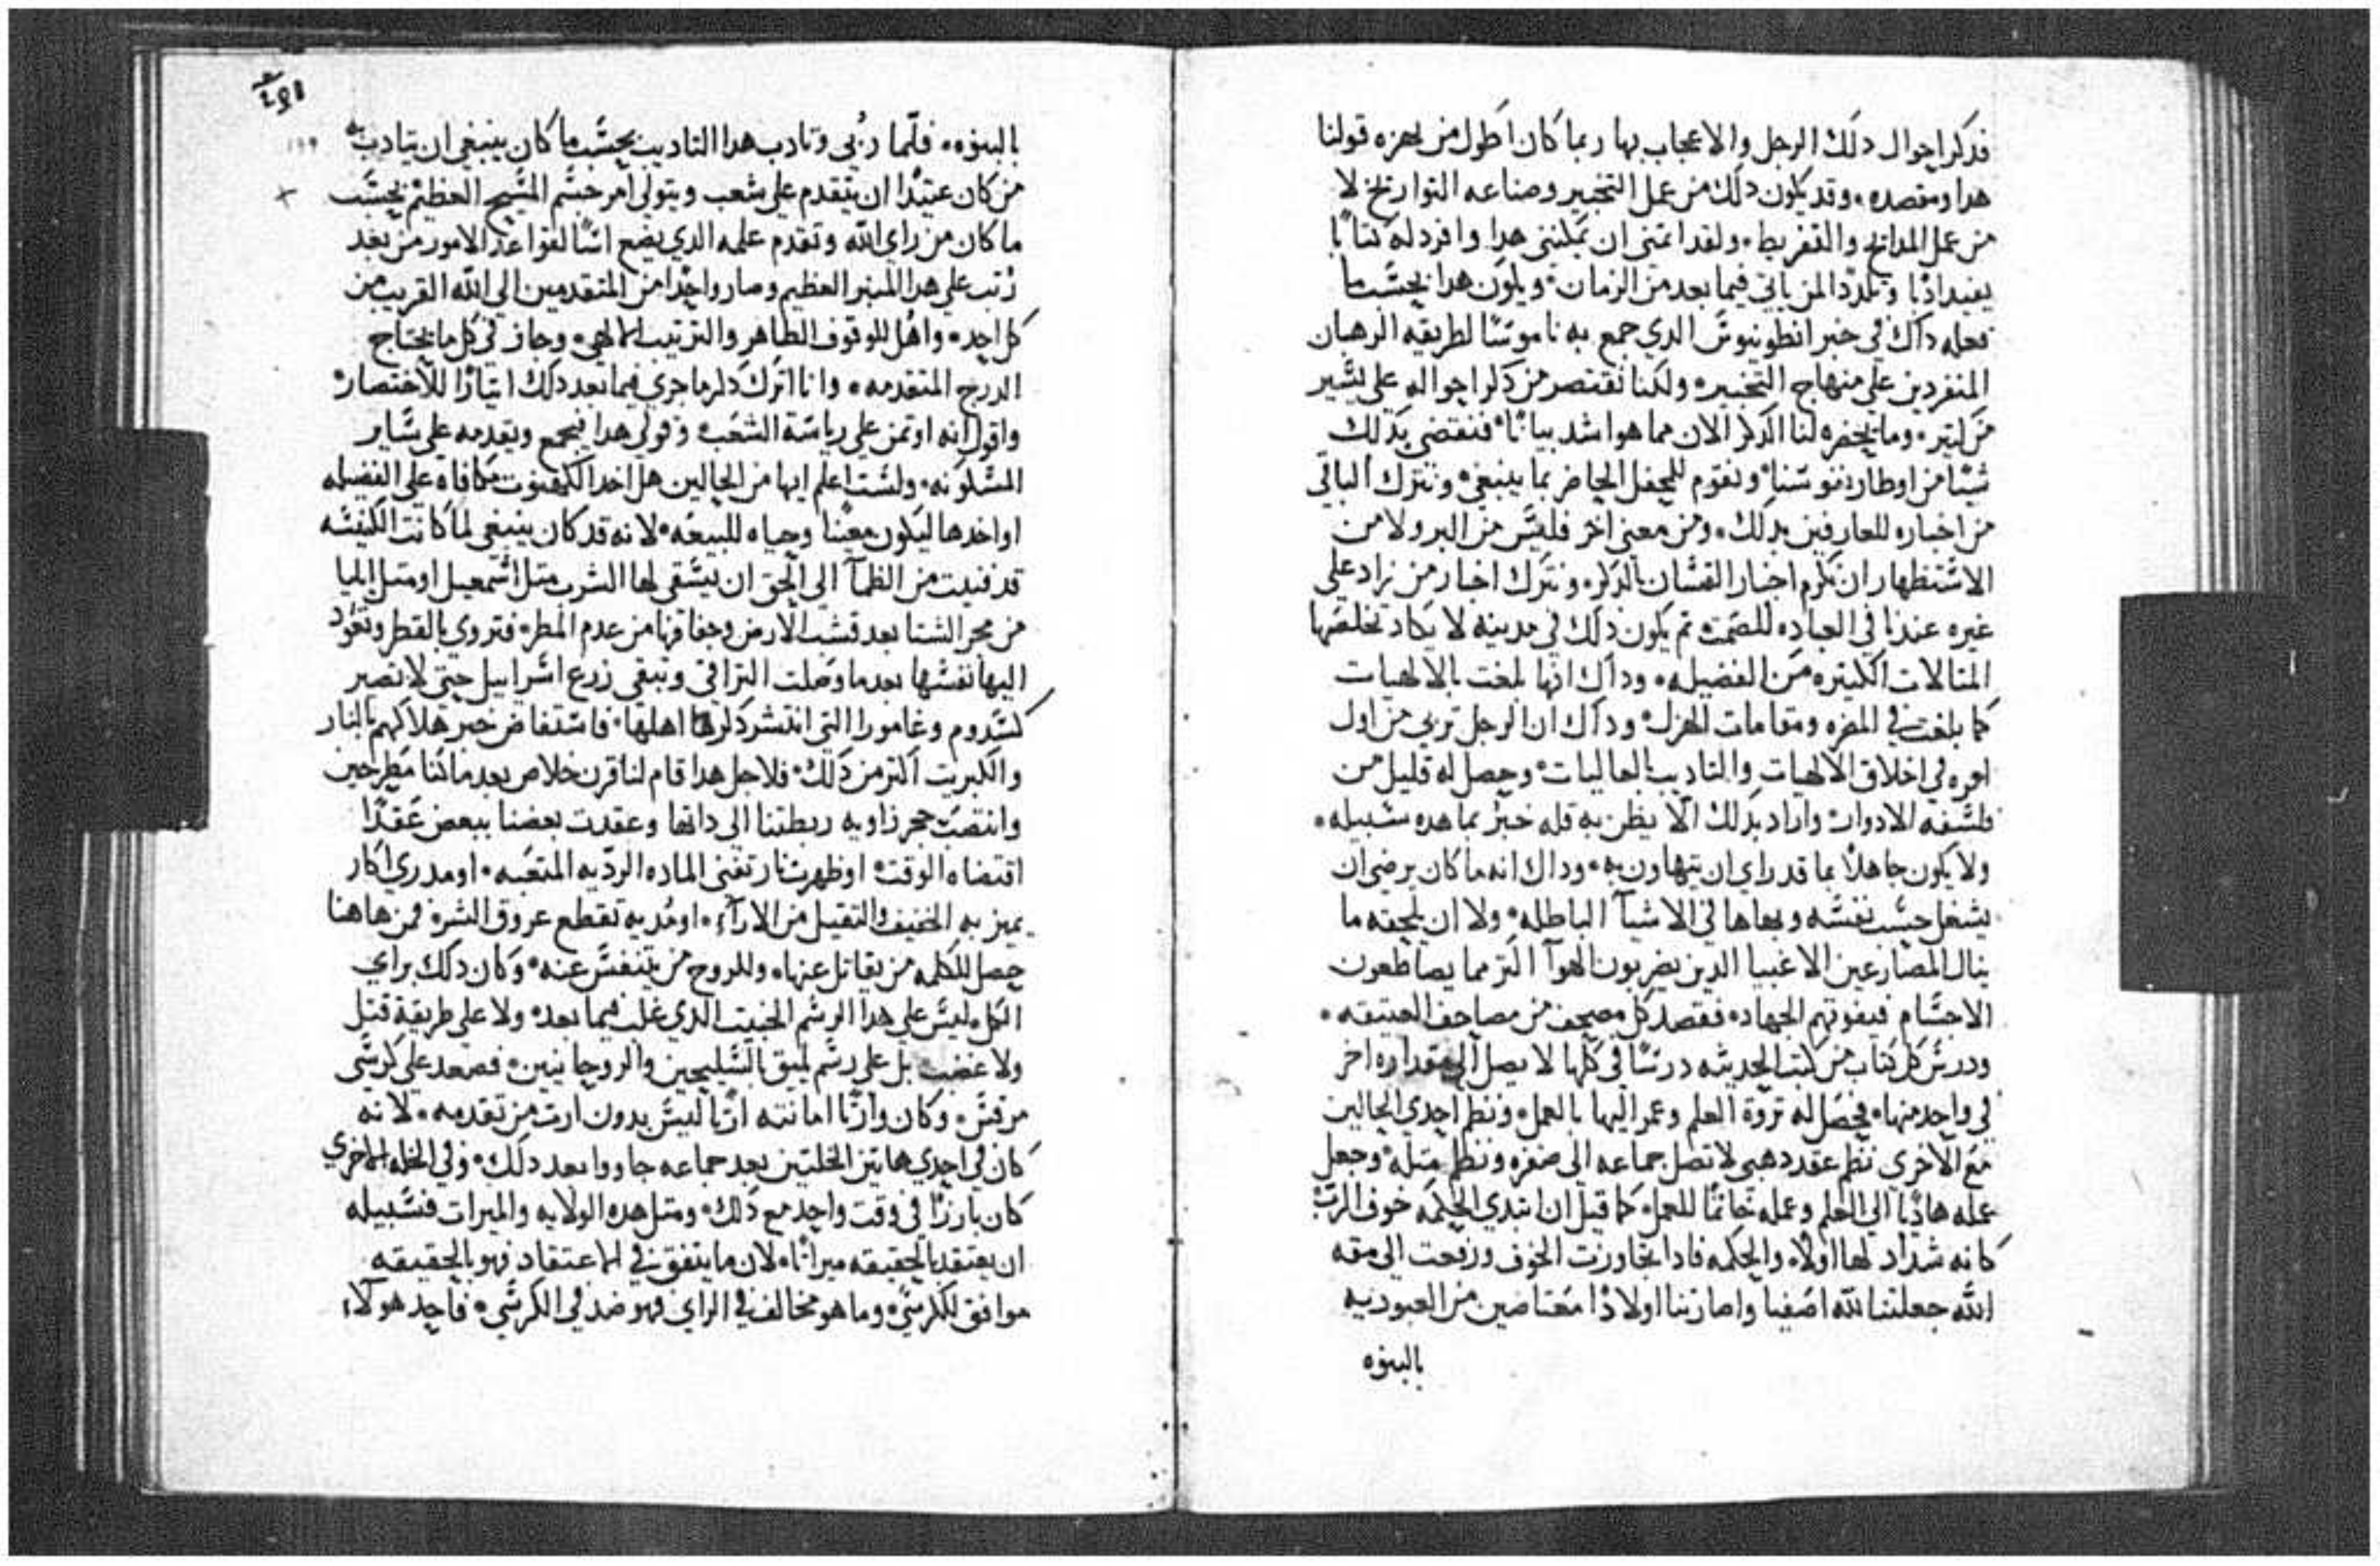 فدكر احوال دلك الرجل والاعجاب بها ربما كان اطول من حفزه قولنا
هدا ومقصده وقد يكون دلك من عمل التخبير وصناعه التواريخ لا
من عمل المدايح والتقريط ولقد اتمنى ان يمكنني هدا وافرد له كتابًا
يفيد ادبا وتلددا لمن ياتي فيما بعد من الزمان ويكون هدا بحسب ما
فعله داك في خبر انطونيوس الدي جمع به ناموسًا لطريقه الرهبان
المنفردين على منهاج التخبير ولكنا نقتصر من دكر احواله على يسير
من كتير وما يحفزه لنا الدكر الان مما هو اشد بيانًا فنقتضي بدلك
شيًا من اوطار نفوسنا ونقوم للمحفل الحاضر بما ينبغي ونترك الباقي
من اخباره للعارفين بدلك ومن معنى اخر فليس من البر ولا من
الاستظهار ان نكرم اخبار الفسان بالدكر ونترك اخبار من زاد على
غيره عندنا في العباده للصمت تم يكون دلك في مدينه لا يكاد تخلصها
المتالات الكتيره من الفضيله وداك انها بلغت بالالهيات
كما بلغت في المفره ومقامات الهزل وداك ان الرجل تربى من اول
امره في اخلاق الالهيات والتاديب العاليات وحصل له قليل من
فلسفه الادوار واراد بدلك الا يظن به قله خبر بما هده سبيله
ولا يكون جاهلا بما قد راي ان يتهاون به وداك انه ما كان يرضى ان
يشغل حسب نفسه وبهاها في الاشيا الباطله ولا ان يلحقه ما
ينال المصارعين الاغبيا الدين يضربون الهوا اكتر مما يصاطعون
الاجسام فيفوتهم الجهاد فقصد كل مصحف من مصاحف العتيقه
ودرس كل كتاب من كتب الحديثه درسًا في كلها لا يصل الى مقداره اخر
في واحد منها فحصل له تروة العلم وعمر اليها بالعمل ونظم احدى الحالين
مع الاخرى نظم عقد دهبي لا تصل جماعه الى ضفره ونظم متله وجعل
عمله هاديًا الى العلم وعمله خاتمًا للعمل كما قيل ان ابتدي الحكمه خوف الرب
كانه شداد لها اولا والحكمه فادا تجاوزت الخوف ورفعت الى مقه
الله جعلتنا لله اصفيا واصارتنا اولادًا معتاضين من العبوديه
بالبنوه
بالبنوه فلما ربي وتادب هدا التاديب بحسب ما كان ينبغي ان يتادب به
من كان عتيدًا ان يتقدم على شعب ويتولى امر جسم المسيح العظيم بحسب
ما كان من راي الله وتقدم علمه الدي يضع اسًا لقواعد الامور من بعد
رتب على هدا المنبر العظيم وصار واحدًا من المتقدمين الى الله القريب من
كل احد واهل للوقوف الطاهر والترتيب الالهي وجاز في كل ما يحتاج
الدرج المتقدمه وانا اترك دكر ما جرى فيما بعد دلك ايتارًا للاختصار
واقول انه اوتمن على رياسة الشعب وقولي هدا يجمع وتقدمه على ساير
المسكونه ولست اعلم ايها من الحالين هل اخد الكهنوت مكافاه على الفضيله
او اخدها ليكون معينًا وحياه للبيعه لانه قد كان ينبغي لما كانت الكنيسه
قد فنيت من الظمآ الى الحق ان يسقى لها الشرب متل اسمعيل او متل ايليا
من مجر الشتا بعد قشب الارض وجفافها من عدم المطر فتروى بالقطر وتعود
اليها نفسها بعد ما وصلت التراقي وتبقى زرع اسراييل حتى لا تصير
كسدوم وغامورا التي انتشر دكرها اهلها فاستفاض خبر هلاكهم بالنار
والكبريت اكتر من دلك فلاجل هدا قام لنا قرن خلاص بعد ما كنا مطرحين
وانتصب حجر زاويه ربطتنا الى داتها وعقدت بعضنا ببعض عقدًا
اقتضاه الوقت او ظهرت نار تفني الماده الرديه المتعبه او مدري اكار
يميز به الخفيف والتقيل من الارآء او مديه تقطع عروق الشر فمن هاهنا
حصل للكلمه من يقاتل عنها وللروح من يتنفس عنه وكان دلك براي
الكل ليس على هدا الرسم الخبيت الدي غلب فيما بعد ولا على طريقة قتل
ولا غضب بل على رسم يليق بالسليحين والروحانيين فصعد على كرسي
مرقس وكان وارتًا امانته ارتًا ليس بدون ارت من تقدمه لانه
كان في احدى هاتين الخلتين بعد جماعه جاووا بعد دلك وفي الخله الاخرى
كان بارزًا في وقت واحد مع دلك ومتل هده الولايه والميرات فسبيله
ان يعتقد بالحقيقه ميراتًا لان ما يتفق في الاعتقاد فهو بالحقيقه
موافق للكرسي وما هو مخالف في الراي فهو ضد في الكرسي فاحد هولآء